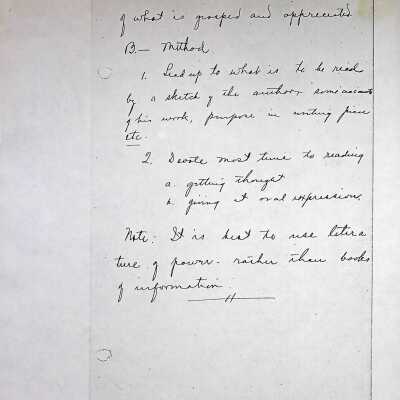 of what is grasped and appreciated
B.— Method
1. Lead up to what is to be read
by a sketch of the author, some account
of his work, purpose in writing piece
etc.
2. Devote most time to reading
a. getting thought
b. giving it oral expression.
Note: It is best to use litera
ture of power - rather than books
of information.